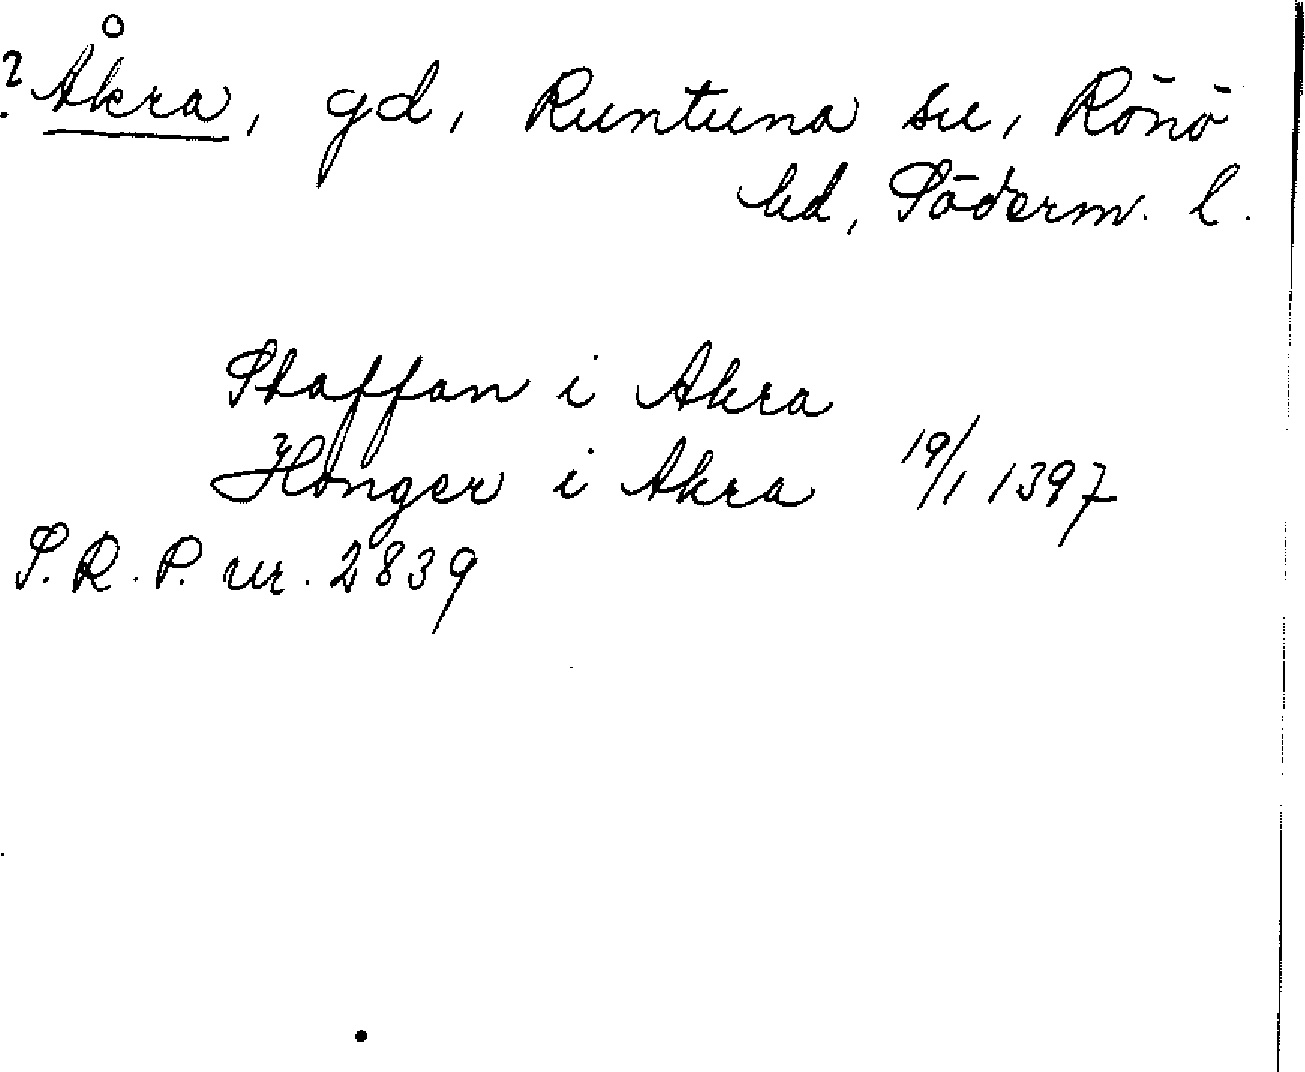 ? Åkra, gd, Runtuna sn, Rönö
hd, Söderm. l.
Staffan i Akra
Honger i Akra 19/1 1397
S. R. P. nr. 2839